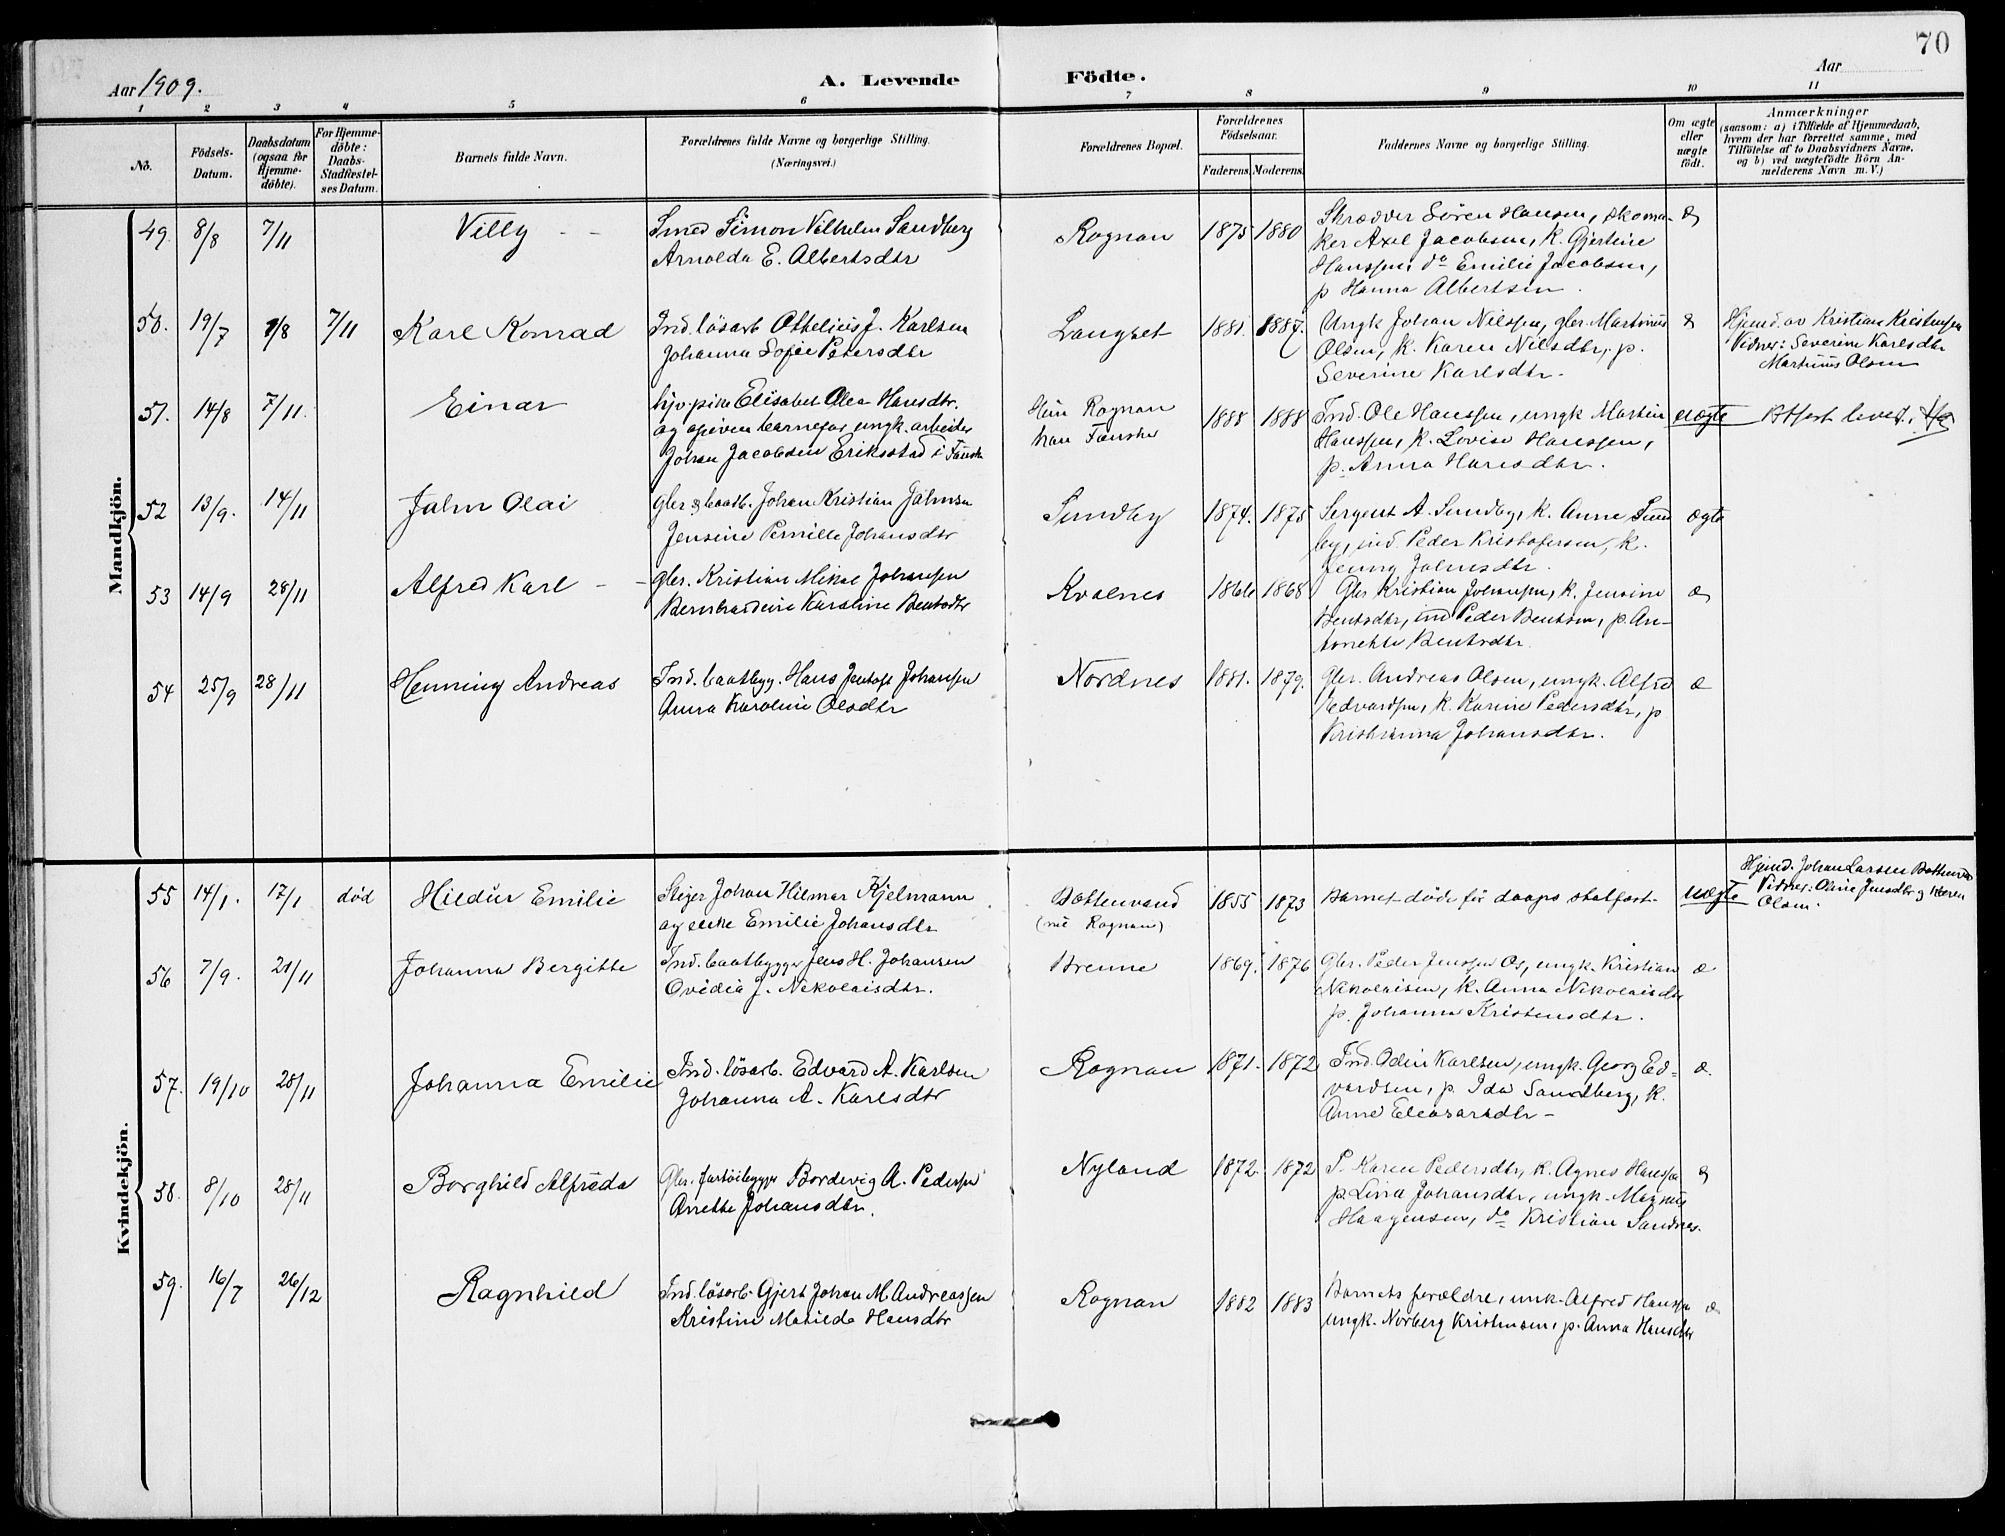 70
Aar 1909.
A. Levende Födte.
Aar
1 2 3 4 5 6 7 8 9 10 11
No.
Födsels-Datum.
Daabsdatum (ogsaa for Hjemme-döbte).
For Hjemme-döbte: Daabs-Stadfæstel-ses Datum.
Barnets fulde Navn.
Forældrenes fulde Navne og borgerlige Stilling.
(Næringsvei.)
Forældrenes Bopæl.
Forældrenes Födselsaar.
Faderens. Moderens.
Faddernes Navne og borgerlige Stilling.
Om ægte eller uægte födt.
Anmærkninger
(saasom: a) i Tilfælde af Hjemmedaab,
hvem der har forrettet samme, med
Tilföielse af to Daabsvidners Navne,
og b) ved uægtefödte Börn An-
melderens Navn m. V.)
Mandkjön.
49. 8/8 7/11 Villy - - Smed Simon Vilhelm Sandberg Rognan 1875 1880 Skrædder Sören Hansen, skoma-
Arnolda E. Albertsdtr ker Axel Jacobsen, k. Gjertine
Hanssen, do Emilie Jacobsen,
p Hanna Albertsen.
50. 19/7 1/8 7/11 Karl Konrad Ind. lösarb Othelius J. Karlsen Langset 1881. 1887. Ungk Johan Nilssen, gbr. Martinus Hjemd. av Kristian Kristensen
Johanna Sofie Petersdtr Olsen, k. Karen Nilsdtr, p. Vidner: Severine Karlsdtr
Severine Karlsdtr. Martinus Olsen
51. 14/8 7/11. Einar hjv. pike Elisabet Olea Hansdtr. Hun Rognan 1888 1888 Ind. Ole Hanssen, ungk Martin uægte
og opgiven barnefar ungk. arbeider han Fauske Hanssen, k. Lovise Hanssen,
Johan Jacobsen Eriksstad i Fauske p. Anna Hansdtr.
52 13/9. 14/11 Jahn Olai gbr & baatb. Johan Kristian Jahnsen Sundby 1874. 1875 Sergent A. Sundby, k. Anne Sund ægte
Jensine Pernille Johansdtr by, ind. Peder Kristofersen, k.
Jenny Jahnsdtr.
53 14/9 28/11 Alfred Karl - - gbr. Kristian Mikal Johansen Kvalnes 1866 1868 Gbr Kristian Johansen, k. Jensine æ
Bernhardine Karoline Bentsdtr Bentsdtr, ind Peder Bentsen, p. An-
tonette Bentsdtr.
54 25/9 28/11 Henning Andreas Ind. baatbyg. Hans Jentoft Johansen Nordnes 1881. 1879. Gbr. Andreas Olsen, ungk. Alfred æ
Anna Karoline Olsdtr Edvardsen, k. Karine Pedersdtr, p
Kristianna Johansdtr.
Kvindekjön.
55 14/1. 17/1 död Hildur Emilie Steiger Johan Hilmar Kjelmann Bottenvand 1855 1873 Barnet döde för daaps statfæst. uægte Hjemd. Johan Larsen Bottenvd
og enke Emilie Johansdtr (nu Rognan) Olsen.
56 7/9. 21/11 Johanna Bergitte Ind. baatbygger Jens H. Johansen Brenne 1869. 1876 Gbr. Peder Jenssen Os, ungk. Kristian æ
Ovidia J. Nikolaisdtr. Nikolaisen, k. Anna Nikolaisdtr
p. Johanna Kristensdtr.
57. 19/10 28/11 Johanna Emilie Ind. lösarb. Edvard A. Karlsen Rognan 1871. 1872 Ind. Odin Karlsen, ungk. Georg Ed- æ.
Johanna A. Karlsdtr vardsen, p. Ida Sandberg, k.
Anne Eleasarsdtr -
58. 8/10 28/11 Borghild Alfrida Gbr. fartöibygger Bordevig A. Pedersen Nyland 1872. 1872 P. Karen Pedersdtr, k. Agnes Hanssen
Anette Johansdtr. p. Lina Johansdtr, ungk. Magnus
Haagensen, do Kristian Sandnes.
59. 16/7 26/12 Ragnhild Ind. lösarb. Gjert Johan M. Andreassen Rognan 1882 1883 Barnets forældre, unk. Alfred Hanssen æ
Kristine Matilde Hansdtr ungk. Norberg Kristensen, p. Anna Hansdtr